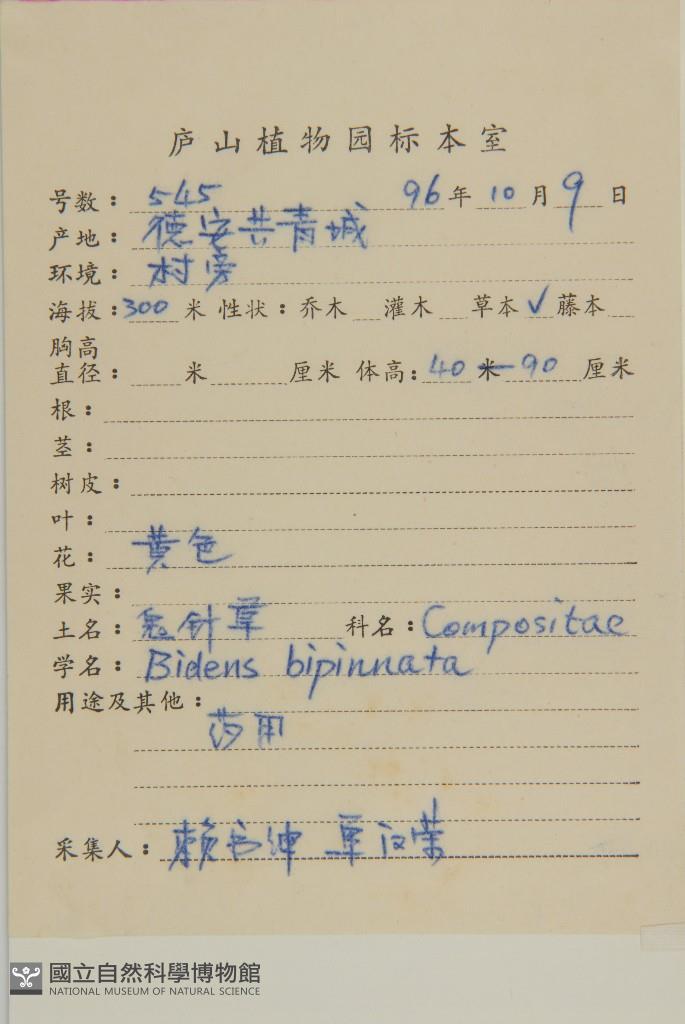 庐山植物园标本室
号数：545 96年10月9日
产地：德安共青城
环境：村旁
海拔：300米 性状：乔木 灌木 草本✓藤本
胸高
直径： 米 厘米 体高：40米—90厘米
根：
茎：
树皮：
叶：
花：黄色
果实：
土名：鬼针草 科名：Compositae
学名：Bidens bipinnata
用途及其他：
药用
采集人：赖书绅
國立自然科學博物館
NATIONAL MUSEUM OF NATURAL SCIENCE